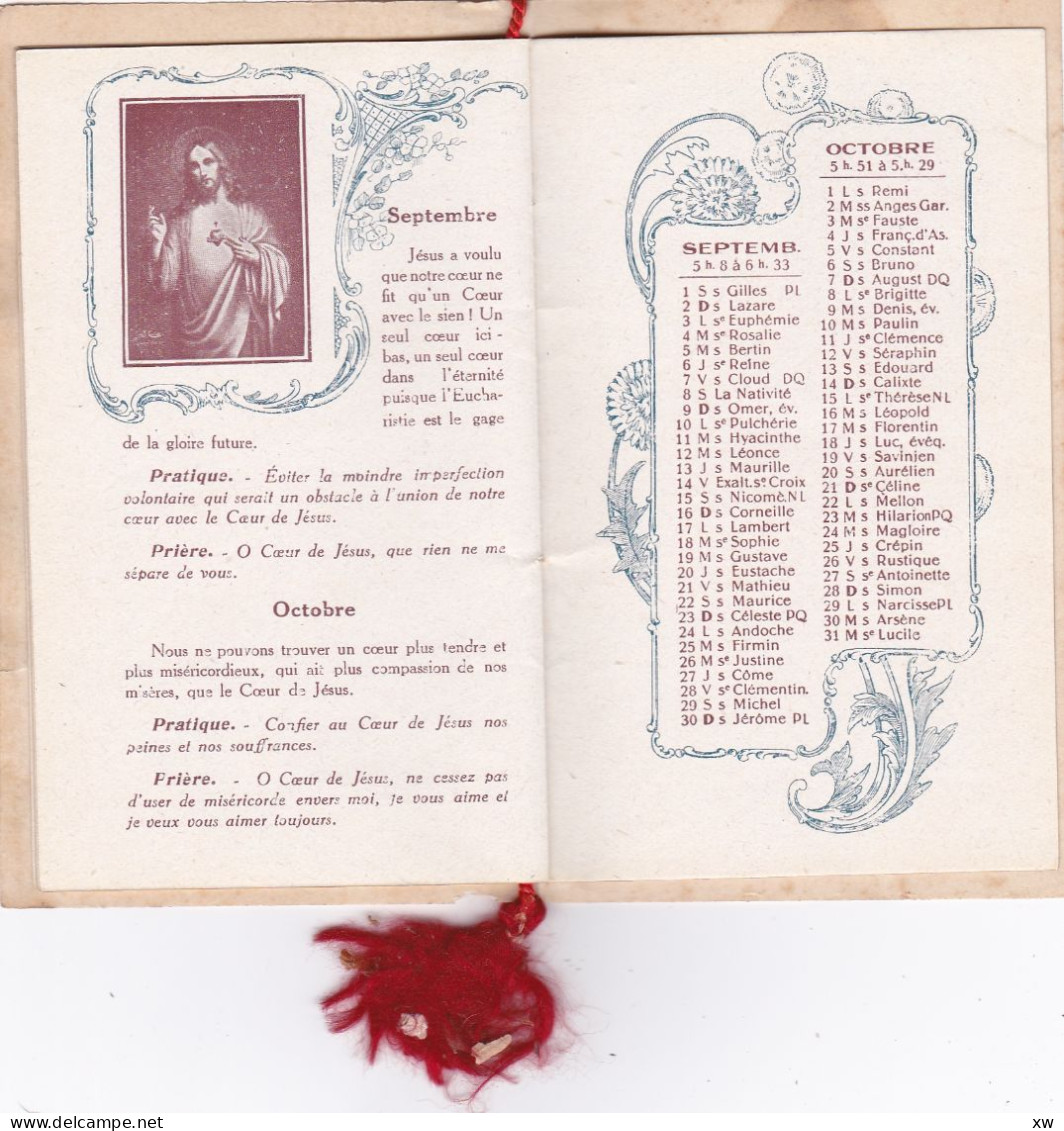 Septembre
Jésus a voulu
que notre cœur ne
fit qu'un Cœur
avec le sien ! Un
seul cœur ici-
bas, un seul cœur
dans l'éternité
puisque l'Eucha-
ristie est le gage
de la gloire future.
Pratique. - Éviter la moindre imperfection
volontaire qui serait un obstacle à l'union de notre
cœur avec le Cœur de Jésus.
Prière. - O Cœur de Jésus, que rien ne me
sépare de vous.
Octobre
Nous ne pouvons trouver un cœur plus tendre et
plus miséricordieux, qui ait plus compassion de nos
misères, que le Cœur de Jésus.
Pratique. - Confier au Cœur de Jésus nos
peines et nos souffrances.
Prière. - O Cœur de Jésus, ne cessez pas
d'user de miséricorde envers moi, je vous aime et
je veux vous aimer toujours.
SEPTEMB.
5 h. 8 à 6 h. 33
1 S s Gilles PL
2 D s Lazare
3 L se Euphémie
4 M se Rosalie
5 M s Bertin
6 J se Reine
7 V s Cloud DQ
8 S La Nativité
9 D s Omer, év.
10 L se Pulchérie
11 M s Hyacinthe
12 M s Léonce
13 J s Maurille
14 V Exalt. se Croix
15 S s Nicomè. NL
16 D s Corneille
17 L s Lambert
18 M se Sophie
19 M s Gustave
20 J s Eustache
21 V s Mathieu
22 S s Maurice
23 D s Céleste PQ
24 L s Andoche
25 M s Firmin
26 M se Justine
27 J s Côme
28 V se Clémentin.
29 S s Michel
30 D s Jérôme PL
OCTOBRE
5 h. 51 à 5.h. 29
1 L s Remi
2 M ss Anges Gar.
3 M se Fauste
4 J s Franç. d'As.
5 V s Constant
6 S s Bruno
7 D s August DQ
8 L se Brigitte
9 M s Denis, év.
10 M s Paulin
11 J se Clémence
12 V s Séraphin
13 S s Edouard
14 D s Calixte
15 L se Thérèse NL
16 M s Léopold
17 M s Florentin
18 J s Luc, évêq.
19 V s Savinien
20 S s Aurélien
21 D se Céline
22 L s Mellon
23 M s Hilarion PQ
24 M s Magloire
25 J s Crépin
26 V s Rustique
27 S se Antoinette
28 D s Simon
29 L s Narcisse PL
30 M s Arsène
31 M se Lucile
xw